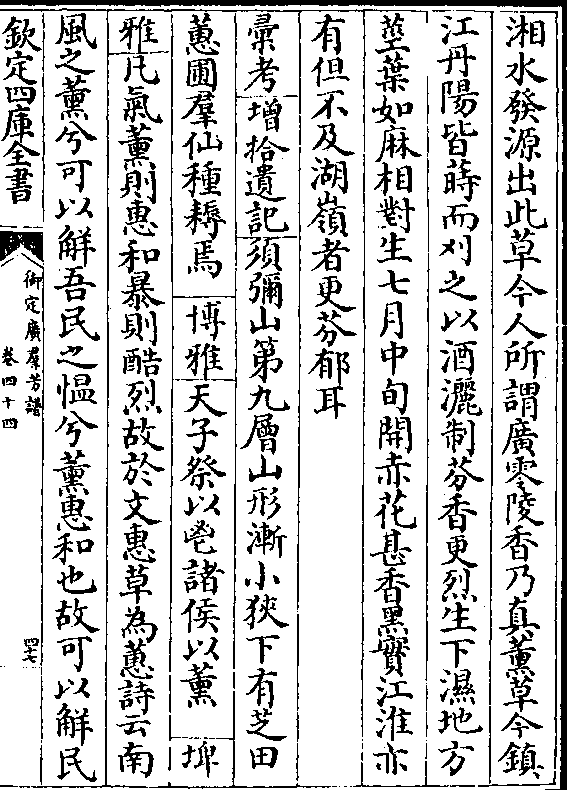 湘水發源出此草今人所謂廣零陵香乃真薰草今鎮
江丹陽皆蒔而刈之以酒灑制芬香更烈生下濕地方
莖葉如麻相對生七月中旬開赤花甚香黑實江淮亦
有但不及湖嶺者更芬郁耳
彚考增拾遺記須彌山第九層山形漸小狹下有芝田
蕙圃羣仙種耨焉 博雅天子祭以鬯諸侯以薰 埤
雅凡氣薰則惠和暴則酷烈故於文惠草為蕙詩云南
風之薰兮可以解吾民之愠兮薰惠和也故可以解民
欽定四庫全書
御定廣羣芳譜
卷四十四
四七